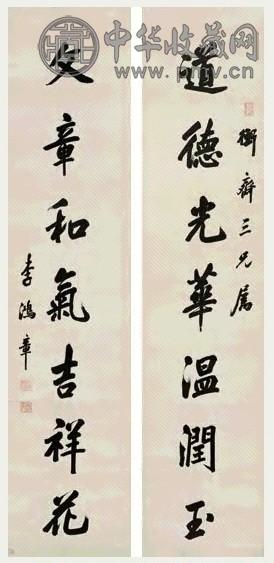 中华收藏网
www.pmtv.cn
衡齋三兄屬
道德光華温潤玉
文章和氣吉祥花
李鴻章